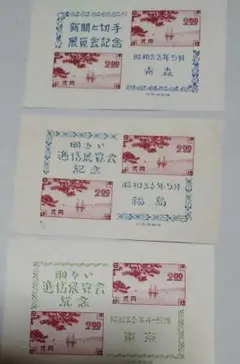 2.00
新聞と切手
展覧会記念
2.00
昭和23年5月
青森
2.00
明るい
逓信展覧会
記念
弐円
2.00
昭和23年5月
福島
弐円
2.00
明るい
逓信展覧会
記念
弐円
2.00
昭和23年4-5月
東京
弐円